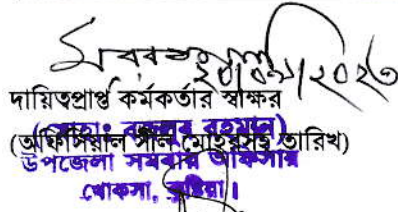 দায়িত্বপ্রাপ্ত কর্মকর্তার স্বাক্ষর
(মোহাঃ বজলুর রহমান)
(অফিসিয়াল সীল মোহরসহ তারিখ)
উপজেলা সমবায় অফিসার
খোকসা, কুষ্টিয়া।